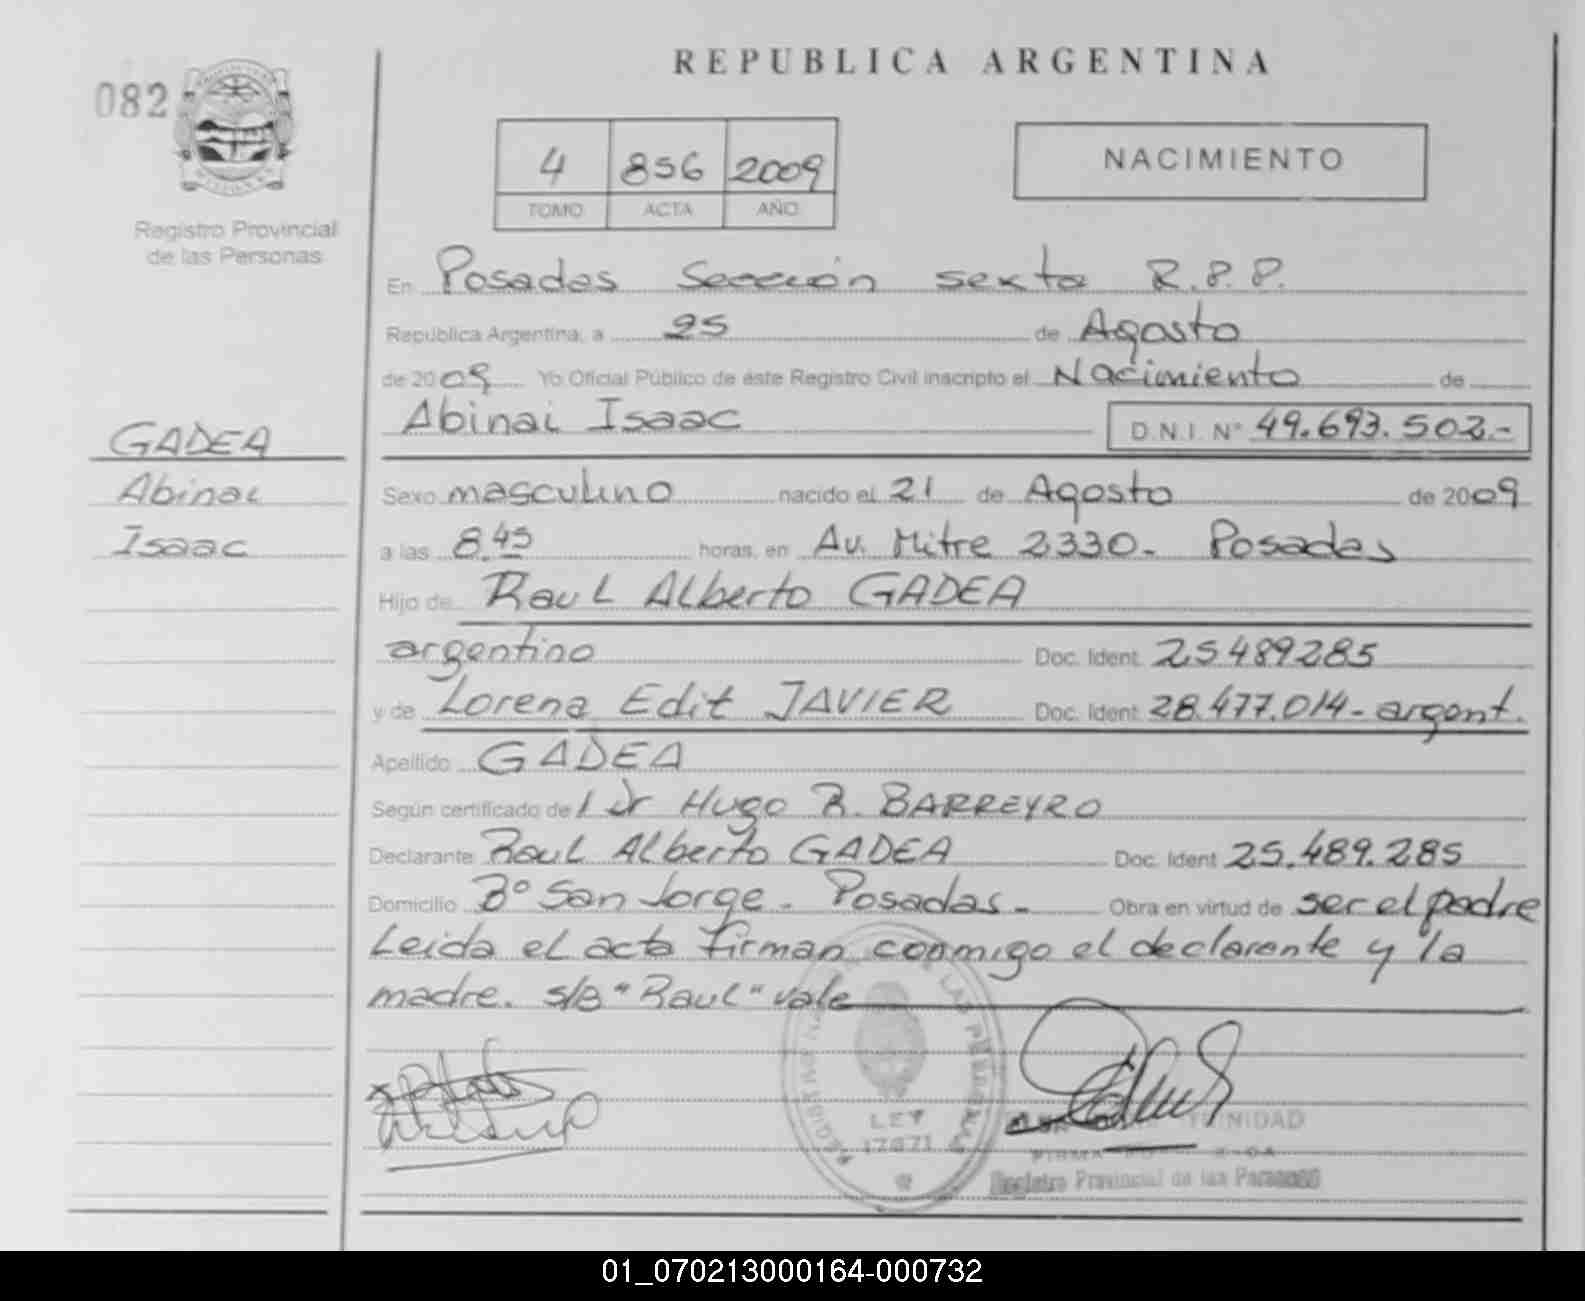 REPUBLICA ARGENTINA
082
4 856 2009
TOMO ACTA AÑO
NACIMIENTO
Registro Provincial
de las Personas
En Posadas Sección sexta R.P.P.
República Argentina, a 25 de Agosto
de 2009 Yo Oficial Público de éste Registro Civil inscripto el Nacimiento de
Abinai Isaac D.N.I. N° 49.693.502.-
GADEA
Abinai
Isaac
Sexo masculino nacido el 21 de Agosto de 2009
a las 8.45 horas, en Av. Mitre 2330- Posadas
Hijo de Raul Alberto GADEA
argentino Doc. Ident. 25489285
y de Lorena Edit JAVIER Doc. Ident. 28.477.014- argent.
Apellido GADEA
Según certificado de Dr Hugo R. BARREYRO
Declarante Raul Alberto GADEA Doc. Ident. 25.489.285
Domicilio B° San Jorge - Posadas - Obra en virtud de ser el padre
Leida el acta firman conmigo el declarante y la
madre. s/B "Raul" vale
LEY
17671
TRINIDAD
Registro Provincial de las Personas
01_070213000164-000732